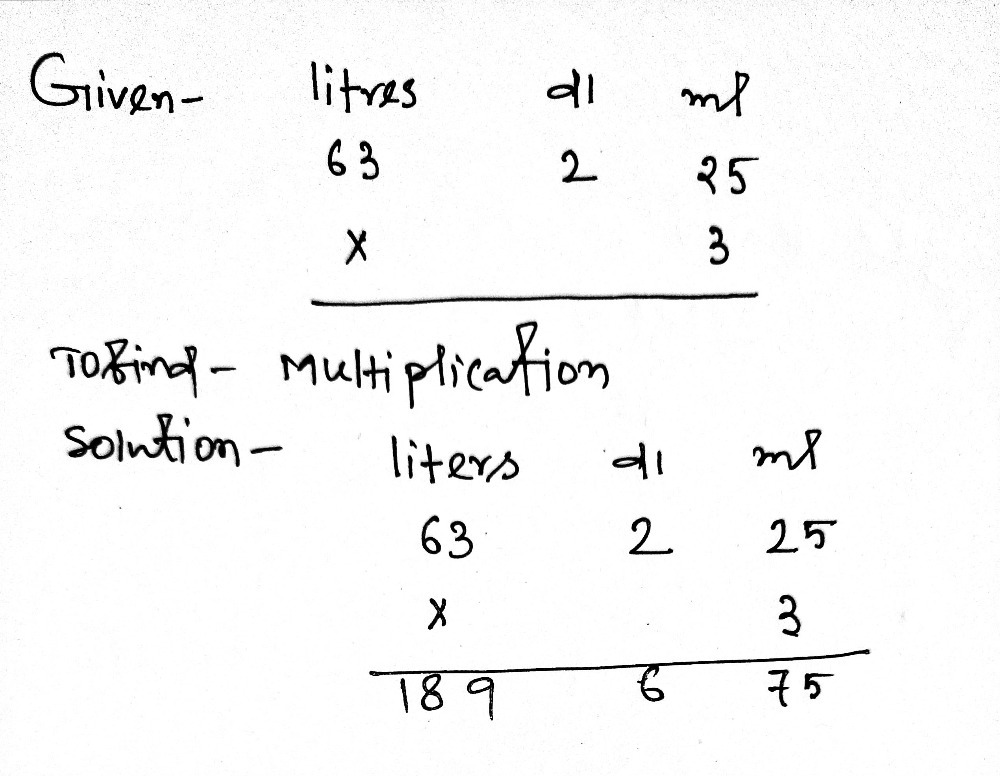 Given- litres dl ml
63 2 25
x 3
To find - Multiplication
Solution - liters dl ml
63 2 25
x 3
189 6 75